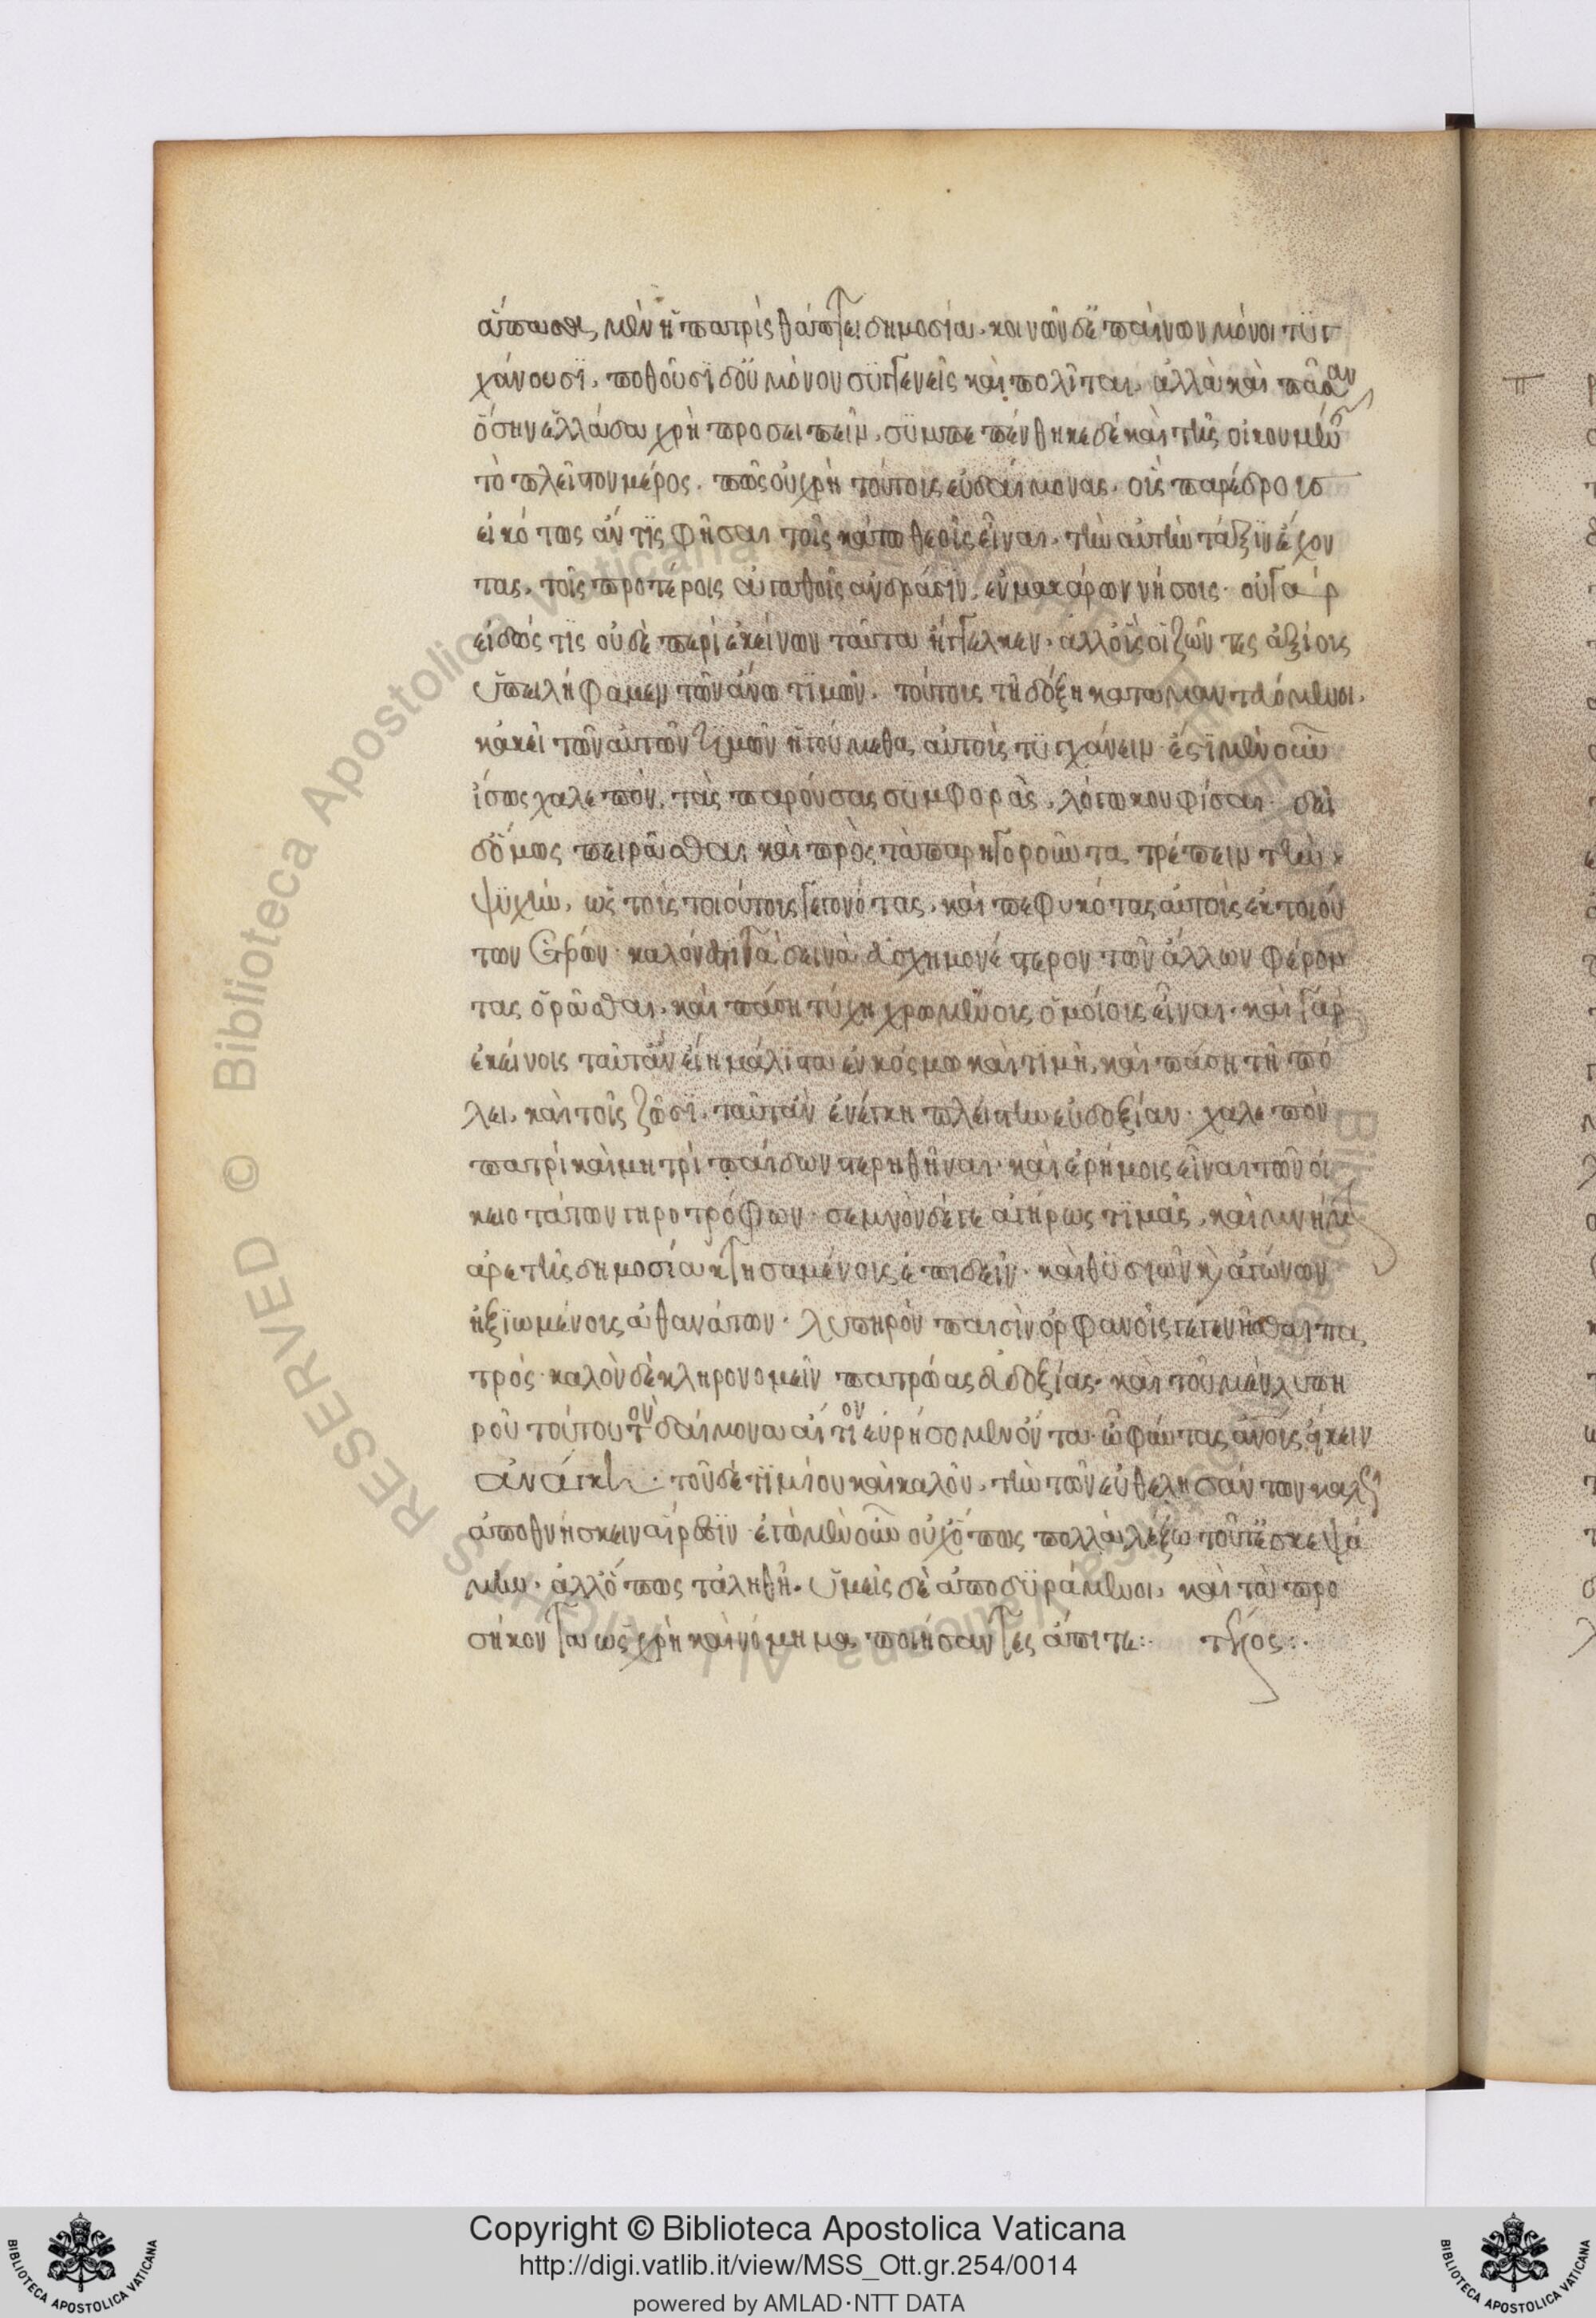 ἅπασα μὲν ἡ πατρὶς θάπτει δημοσία· κοινῶν δ᾽ ἐπαίνων μόνοι τυγ
χάνουσι, ποθοῦσι δ᾽ οὐ μόνον συγγενεῖς καὶ πολῖται, ἀλλὰ καὶ πᾶσαν
ὅσην ἑλλάδα χρὴ προσειπεῖν, συμπεπένθηκε δὲ καὶ τῆς οἰκουμένης
τὸ πλεῖστον μέρος. πῶς οὐ χρὴ τούτους εὐδαίμονας. οἷς παρέδρους
εἰκότως ἄν τις φήσαι τοῖς κάτω θεοῖς εἶναι, τὴν αὐτὴν τάξιν ἔχον
τας, τοῖς προτέροις ἀγαθοῖς ἀνδράσιν, ἐν μακάρων νήσοις· οὐ γὰρ
εἰδώς τις οὐδὲ περὶ ἐκείνων ταῦτα ἤγγελκεν· ἀλλ᾽ οἷς οἱ ζῶντες ἀξίοις
ὑπειλήφαμεν τῶν ἄνω τιμῶν. τούτοις τῇ δόξῃ καταμαντευόμενοι,
κἀκεῖ τῶν αὐτῶν τιμῶν ἡγούμεθα αὐτοὺς τυγχάνειν· ἔστι μὲν οὖν
ἴσως χαλεπὸν, τὰς παρούσας συμφορὰς, λόγω κουφίσαι· δεῖ
δ᾽ ὅμως πειρᾶσθαι καὶ πρὸς τὰ παρηγοροῦντα τρέπειν τὴν
ψυχήν, ὡς τοὺς τοιούτους γεγονότας, καὶ πεφυκότας αὐτοὺς ἐκ τοιού
των
καλόν δεινὰ εὐσχημονέστερον τῶν ἄλλων φέρον
τας ὁρᾶσθαι, καὶ πάση τύχη χρωμένους ὁμοίους εἶναι· καὶ γὰρ
ἐκείνοις ταῦτ᾽ ἂν εἴη μάλιστα ἐν κόσμω καὶ τιμὴ, καὶ πάση τῇ πό
λει, καὶ τοῖς ζῶσι, ταῦτ᾽ ἂν ἐνέγκη πλείστην εὐδοξίαν· χαλεπὸν
πατρὶ καὶ μητρὶ παίδων στερηθῆναι· καὶ ἐρήμοις εἶναι τῶν οἰ
κειοτάτων γηροτρόφων· σεμνὸν δέ γε ἀγήρως τιμὰς, καὶ μνήμην
ἀρετῆς δημοσία κτησαμένους ἐπιδεῖν· καὶ θυσιῶν καὶ ἀγώνων
ἠξιωμένους ἀθανάτων· λυπηρὸν παισὶν ὀρφανοῖς γεγενῆσθαι πα
τρός· καλὸν δὲ κληρονομεῖν πατρώας εὐδοξίας· καὶ τοῦ μὲν λυπη
ροῦ τούτου τὸν δαίμονα αἴτιον εὑρήσομεν ὄντα· ὧ φύντας ἀνθρώπους εἴκειν
ἀνάγκη· τοῦ δὲ τιμίου καὶ καλοῦ, τὴν τῶν ἐθελησάντων καλῶς
ἀποθνήσκειν αἵρεσιν· ἐγὼ μὲν οὖν οὐχ ὅπως πολλὰ λέξω τοῦτ᾽ ἐσκεψά
μην· ἀλλ᾽ ὅπως τἀληθῆ. ὑμεῖς δὲ ἀποδυράμενοι, καὶ τὰ προ
σήκοντα ὡς χρὴ καὶ νόμιμα ποιήσαντες ἄπιτε:· τέλος:·
Copyright © Biblioteca Apostolica Vaticana
http://digi.vatlib.it/view/MSS_Ott.gr.254/0014
powered by AMLAD·NTT DATA